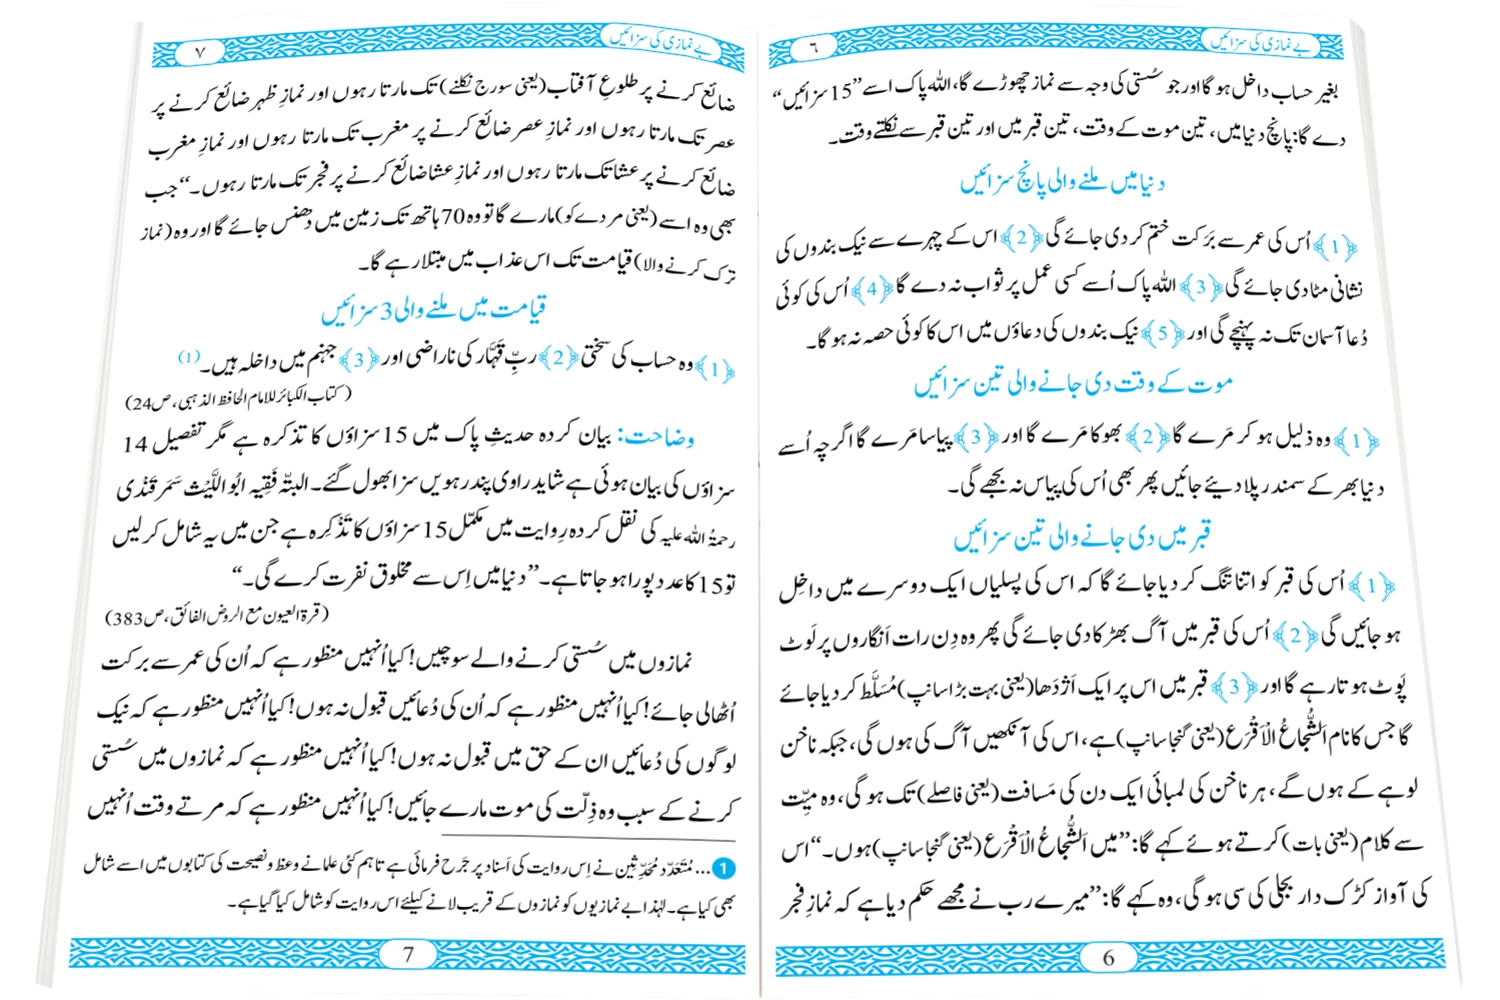 بے نمازی کی سزائیں
٦
بغیر حساب داخل ہوگا اور جو سُستی کی وجہ سے نماز چھوڑے گا، اللہ پاک اسے ”15 سزائیں“
دے گا: پانچ دنیا میں، تین موت کے وقت، تین قبر میں اور تین قبر سے نکلتے وقت۔
دنیا میں ملنے والی پانچ سزائیں
﴿1﴾ اُس کی عمر سے بَرَکت ختم کر دی جائے گی ﴿2﴾ اس کے چہرے سے نیک بندوں کی
نشانی مٹا دی جائے گی ﴿3﴾ اللہ پاک اُسے کسی عمل پر ثواب نہ دے گا ﴿4﴾ اُس کی کوئی
دُعا آسمان تک نہ پہنچے گی اور ﴿5﴾ نیک بندوں کی دعاؤں میں اس کا کوئی حصہ نہ ہوگا۔
موت کے وقت دی جانے والی تین سزائیں
﴿1﴾ وہ ذلیل ہو کر مَرے گا ﴿2﴾ بھوکا مَرے گا اور ﴿3﴾ پیاسا مَرے گا اگرچہ اُسے
دنیا بھر کے سمندر پلا دیئے جائیں پھر بھی اُس کی پیاس نہ بجھے گی۔
قبر میں دی جانے والی تین سزائیں
﴿1﴾ اُس کی قبر کو اتنا تنگ کر دیا جائے گا کہ اس کی پسلیاں ایک دوسرے میں داخِل
ہو جائیں گی ﴿2﴾ اُس کی قبر میں آگ بھڑکا دی جائے گی پھر وہ دِن رات اَنگاروں پر لَوٹ
پَوٹ ہوتا رہے گا اور ﴿3﴾ قبر میں اس پر ایک اَژدَھا (یعنی بہت بڑا سانپ) مُسَلَّط کر دیا جائے
گا جس کا نام اَلشُّجَاعُ الْاَقْرَع (یعنی گنجا سانپ) ہے، اس کی آنکھیں آگ کی ہوں گی، جبکہ ناخن
لوہے کے ہوں گے، ہر ناخن کی لمبائی ایک دن کی مَسافت (یعنی فاصلے) تک ہوگی، وہ میِّت
سے کلام (یعنی بات) کرتے ہوئے کہے گا: ”میں اَلشُّجَاعُ الْاَقْرَع (یعنی گنجا سانپ) ہوں۔“ اس
کی آواز کڑک دار بجلی کی سی ہوگی، وہ کہے گا: ”میرے رب نے مجھے حکم دیا ہے کہ نمازِ فجر
6
بے نمازی کی سزائیں
٧
ضائع کرنے پر طلوعِ آفتاب (یعنی سورج نکلنے) تک مارتا رہوں اور نمازِ ظہر ضائع کرنے پر
عصر تک مارتا رہوں اور نمازِ عصر ضائع کرنے پر مغرب تک مارتا رہوں اور نمازِ مغرب
ضائع کرنے پر عشا تک مارتا رہوں اور نمازِ عشا ضائع کرنے پر فجر تک مارتا رہوں۔“ جب
بھی وہ اسے (یعنی مردے کو) مارے گا تو وہ 70 ہاتھ تک زمین میں دھنس جائے گا اور وہ (نماز
ترک کرنے والا) قیامت تک اس عذاب میں مبتلا رہے گا۔
قیامت میں ملنے والی 3 سزائیں
﴿1﴾ وہ حساب کی سختی ﴿2﴾ ربِّ قَہَّار کی ناراضی اور ﴿3﴾ جہنم میں داخلہ ہیں۔ (1)
(کتاب الکبائر للامام الحافظ الذہبی، ص24)
وضاحت: بیان کردہ حدیثِ پاک میں 15 سزاؤں کا تذکرہ ہے مگر تفصیل 14
سزاؤں کی بیان ہوئی ہے شاید راوی پندرھویں سزا بھول گئے۔ البتّہ فَقِیہ ابُو اللَّیْث سَمَرقَنْدی
رحمۃُ اللہ علیہ کی نقل کردہ رِوایت میں مکمّل 15 سزاؤں کا تَذْکِرہ ہے جن میں یہ شامل کرلیں
تو 15 کا عدد پورا ہو جاتا ہے۔ ”دنیا میں اِس سے مخلوق نفرت کرے گی۔“
(قرۃ العیون مع الروض الفائق، ص383)
نمازوں میں سُستی کرنے والے سوچیں! کیا اُنہیں منظور ہے کہ اُن کی عمر سے برکت
اُٹھالی جائے! کیا اُنہیں منظور ہے کہ اُن کی دُعائیں قبول نہ ہوں! کیا اُنہیں منظور ہے کہ نیک
لوگوں کی دُعائیں ان کے حق میں قبول نہ ہوں! کیا اُنہیں منظور ہے کہ نمازوں میں سُستی
کرنے کے سبب وہ ذِلّت کی موت مارے جائیں! کیا اُنہیں منظور ہے کہ مرتے وقت اُنہیں
1... مُتَعَدِّد مُحَدِّثِین نے اِس روایت کی اَسناد پر جَرح فرمائی ہے تاہم کئی علمانے وعظ و نصیحت کی کتابوں میں اسے شامل
بھی کیا ہے۔ لہٰذا بے نمازیوں کو نمازوں کے قریب لانے کیلئے اس روایت کو شامل کیا گیا ہے۔
7